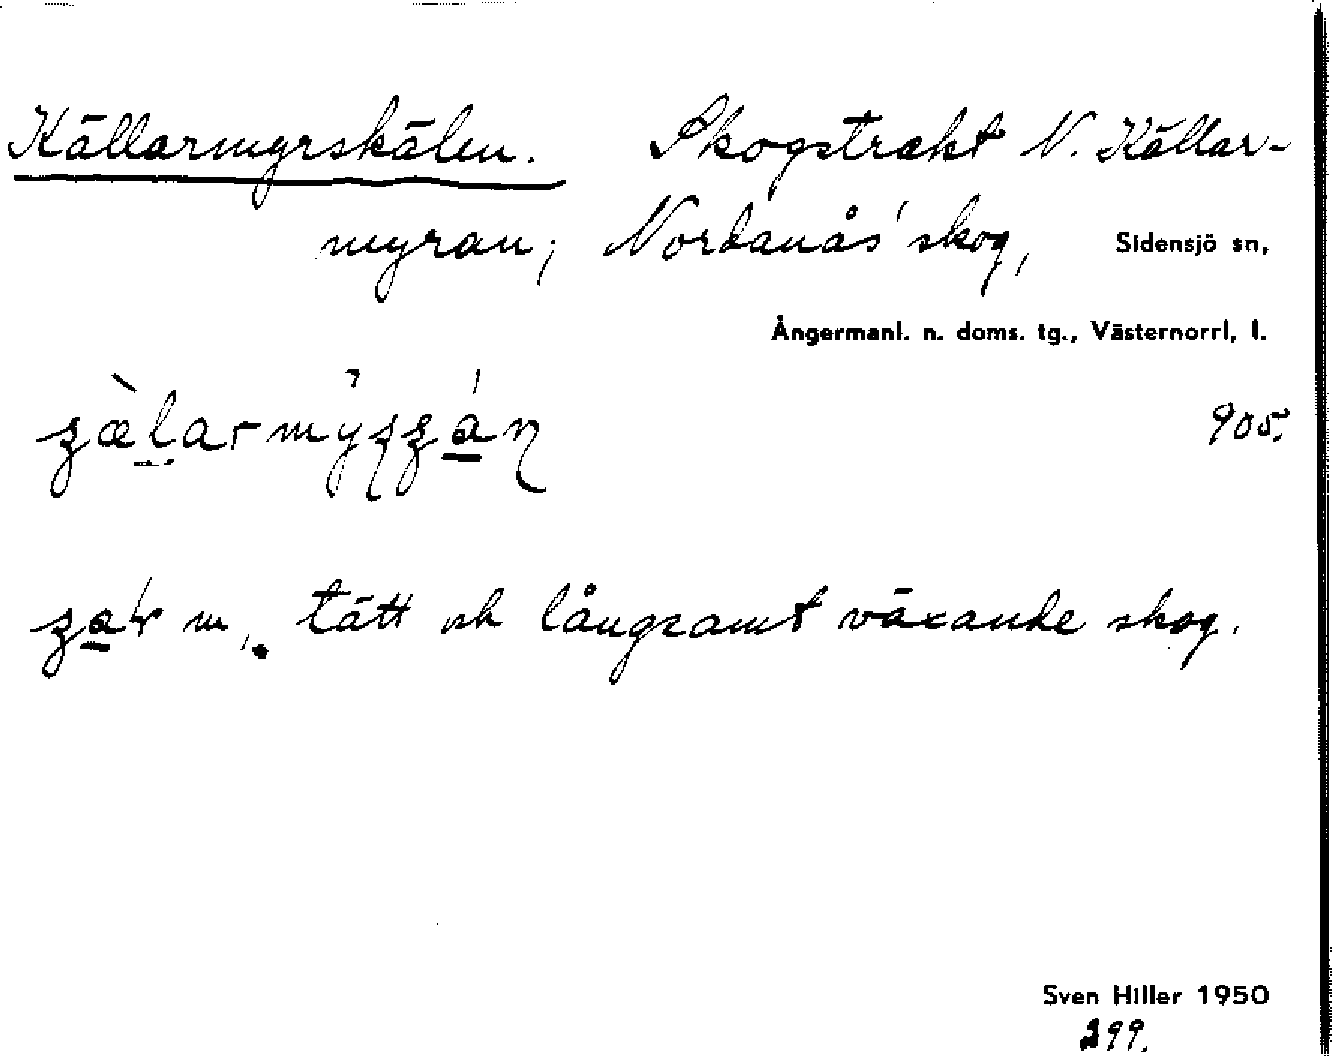 Källarmyrskälen. Skogstrakt N. Källar-
myran; Nordanås' skog, Sidensjö sn,
Ångermanl. n. doms. tg., Västernorrl. l.
905.
m. tätt och långsamt växande skog.
Sven Hiller 1950
299.